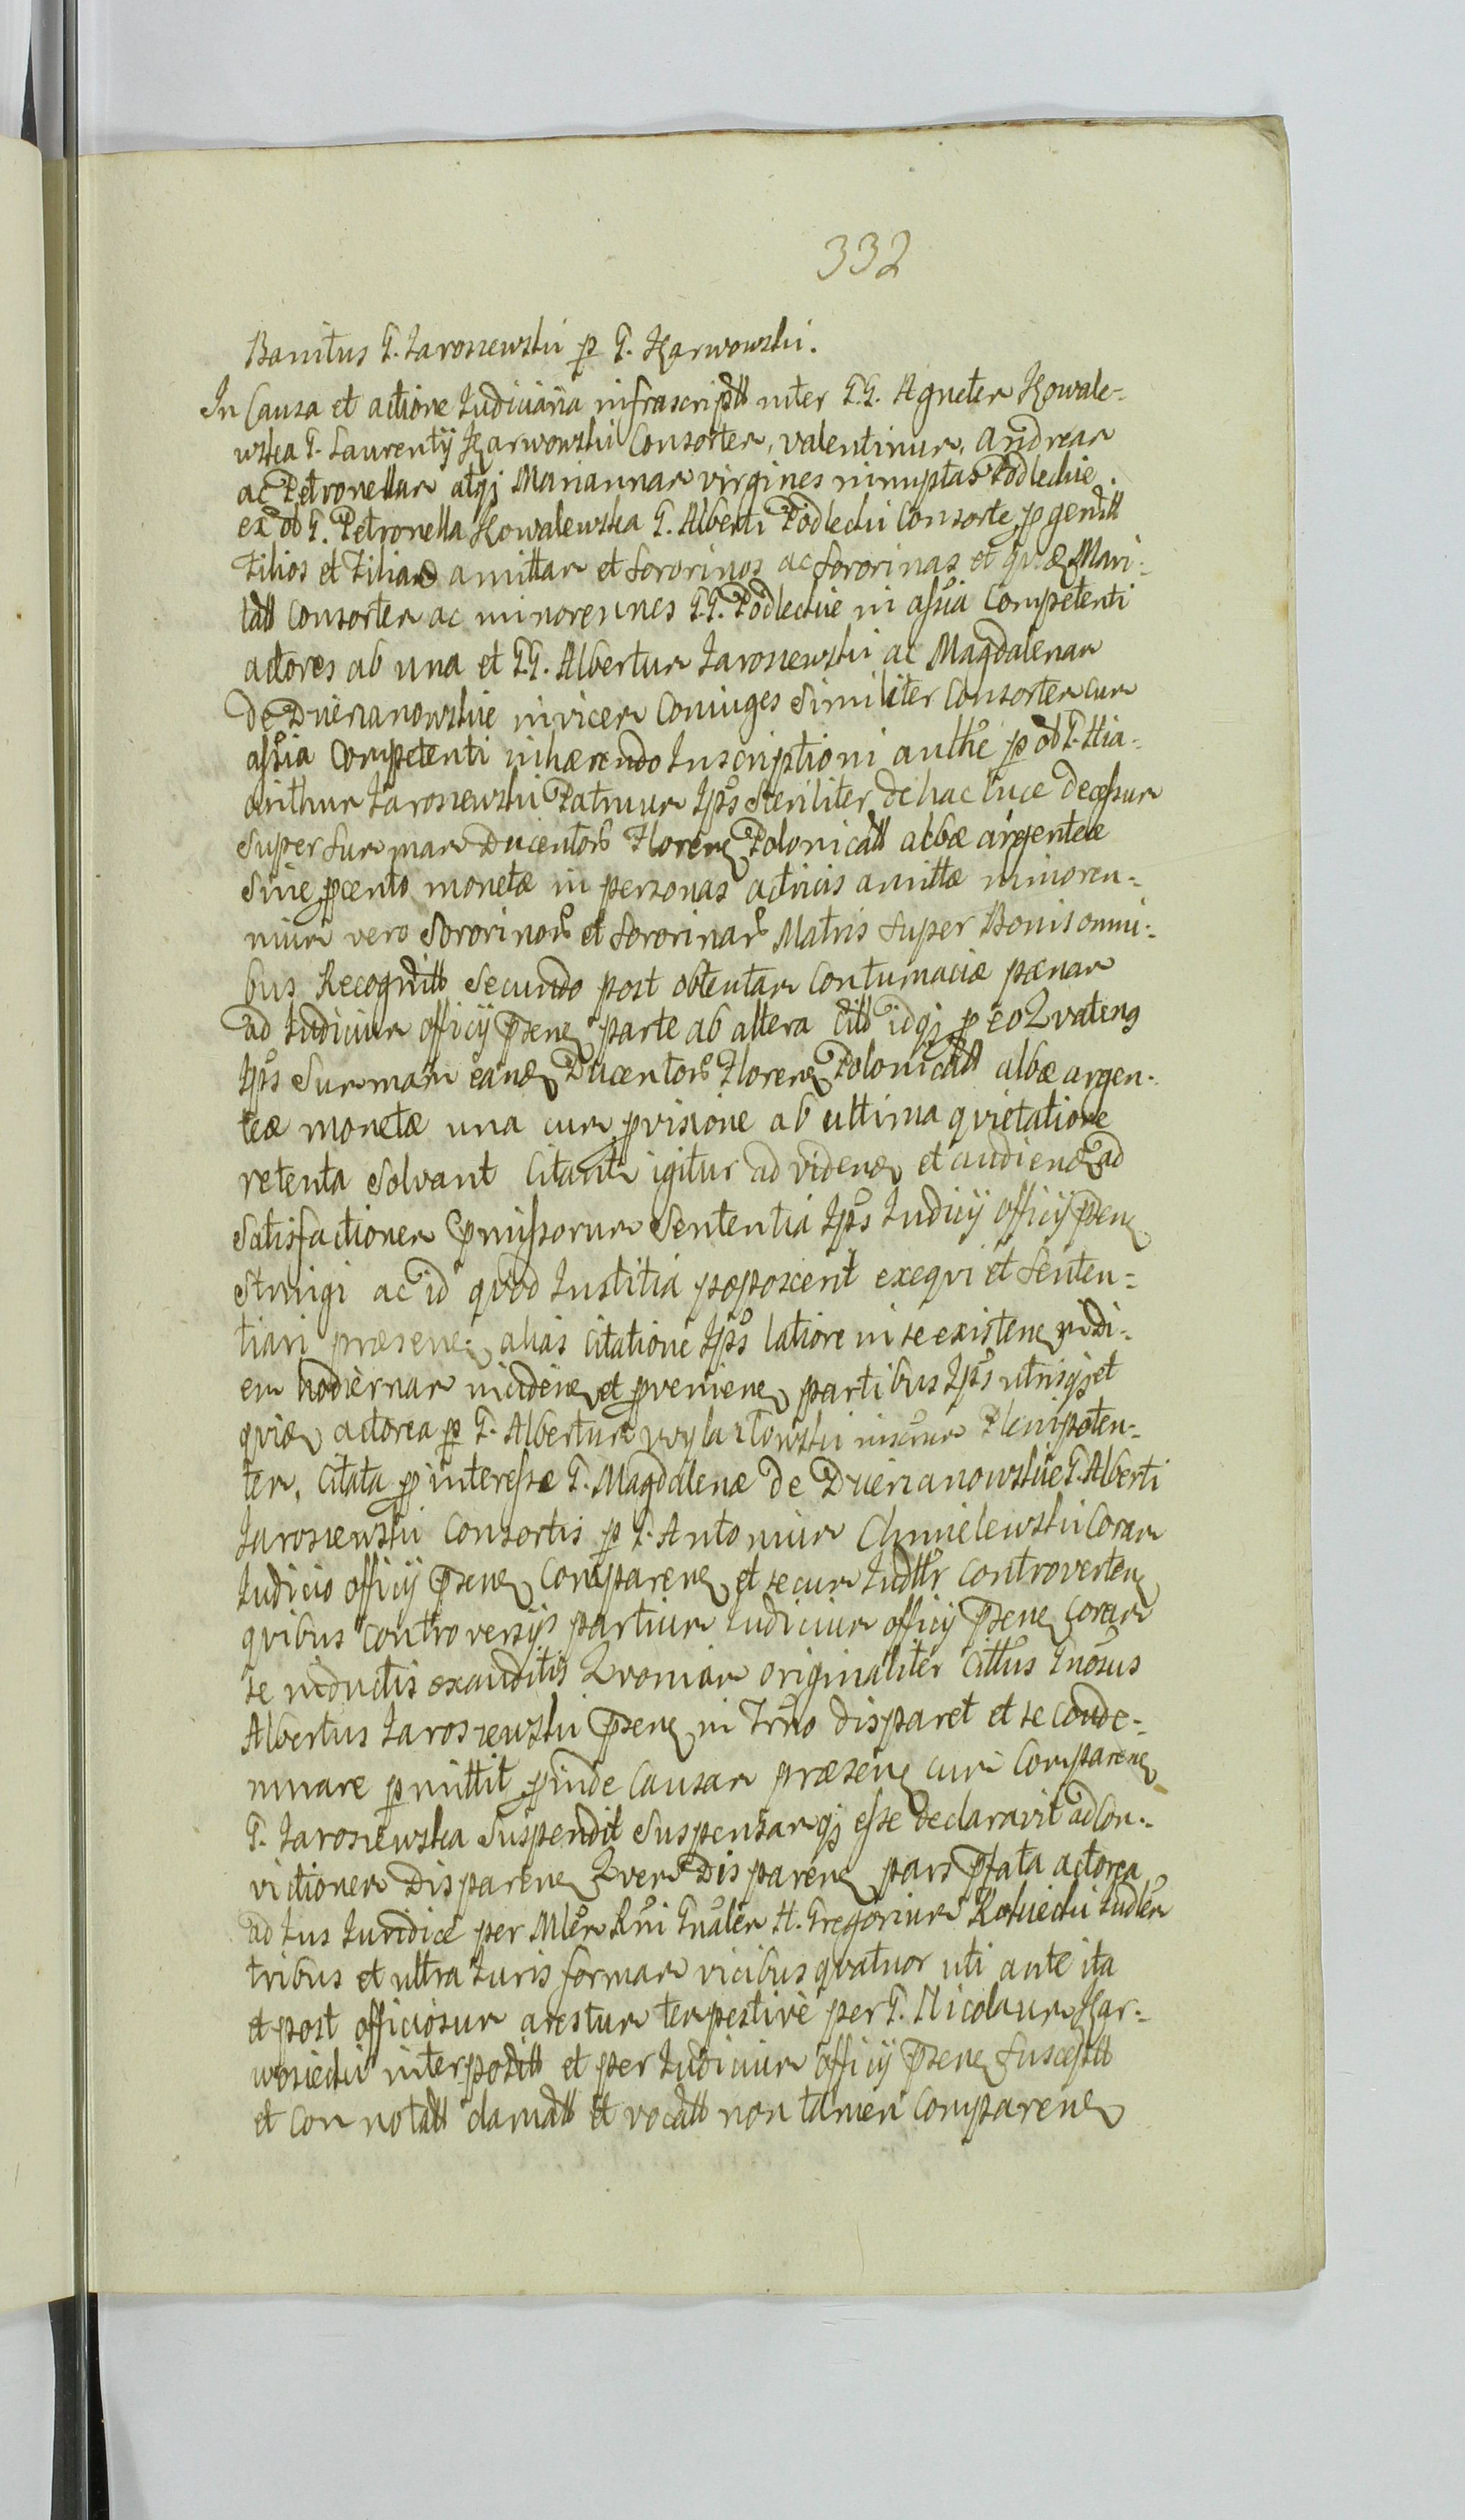 332
Banitus G. Jaroszewski p G. Karwowski.
In Causa et actione Judiciaria infrascriptt inter G.G. Agnetem Kowale-
wska G. Laurentij Karwowski Consortem, Valentinum, Andream
ac Petronellam atqj Mariannam virgines innuptas Podleckie
ex ol G. Petronella Kowalewska G. Alberti Podlecki Consorte pgenitt
Filios et Filias amittam et Sororinos ac Sororinas et quæ Mari-
tatt Consortem ac minorennes G.G. Podleckie in assia Competenti
actores ab una et G.G. Albertum Jaroszewski ac Magdalenam
de Dzierzanowskie invicem Coniuges Similiter Consortem cum
assia Competenti inhærendo Inscriptioni authe p ol G. Ma-
Jaroszewski Patruum Jps Steriliter de hac luce decessum
Super Summam Ducentor Floren Polonicatt albæ argenteæ
Sine pcento monetæ in personas actricis amittæ minoren-
nium vero Sororinor et Sororinar Matris Super Bonis omni-
bus Recognitt Secundo post obtentam Contumaciæ pænam
ad Judicium officij psene parte ab altera Citt idqj p eo Quateng
Jps Summam eand Ducentor Floren Polonicatt albæ argen-
teæ monetæ una cum pvisione ab ultima quietatione
retenta Solvant Citantr igitur ad videnđ et audienđ ad
Satisfactionem pmissorum Sententia Jps Judicij officij psen
Stringi ac id quod Justitia poposcerit exequi et Senten-
tiari præsene alias Citatione Jps latiore in se existene in di-
em hodiernam incidene et pveniene partibus Jps utrisqj et
quiđ actorea p G. Albertum Plenipoten-
tem, Citata p interesse G. Magdalenæ de Dzierzanowskie G. Alberti
Jaroszewski Consortis p G. Antonium Chmielewski Coram
Judicio officij psene Comparene et secum Judltr Controverten
quibus Controversijs partium Judicium officij psene Coram
se inductis exauditis Quoniam originaliter Cittus Gnosus
Albertus Jaroszewski psene in Trno disparet et se Conde-
mnare pmittit pinde Causam præsene cum Comparene
G. Jaroszewska Suspendit Suspensamqj esse declaravit ad Con-
victionem Disparene Quem Disparene pars pfata actorea
ad Jus Juridice per Mlem Rni Gnalem H. Gregorium Judlem
tribus et ultra Juris formam vicibus quatuor uti ante ita
et post officiosum arestum tempestive per G. Nicolaum Kar-
wosiecki interpositt et per Judicium officij psene Susceptt
et Connotatt clamatt et vocatt non tamen Comparene